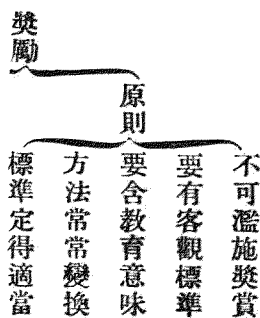 獎勵
原則
不可濫施獎賞
要有客觀標準
要含教育意味
方法常常變換
標準定得適當